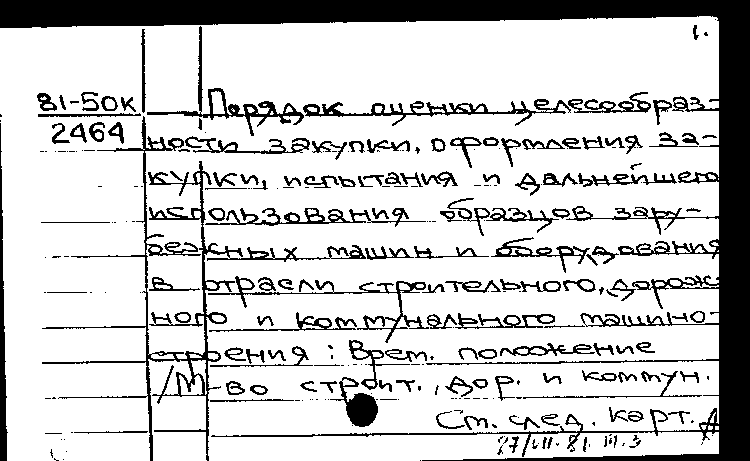 1.
81-50к
2464
Порядок оценки целесообраз-
ности закупки, оформления за-
купки, испытания и дальнейшего
использования образцов зару-
бежных машин и оборудования
в отрасли строительного, дорож-
ного и коммунального машино-
строения : Врем. положение
/М-во строит., дор. и коммун.
См. след. карт.